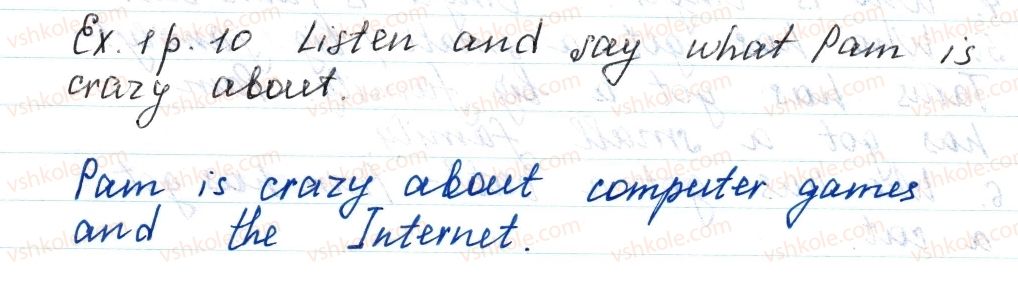 Ex. 1 p. 10 Listen and say what Pam is
crazy about.
Pam is crazy about computer games
and the Internet.